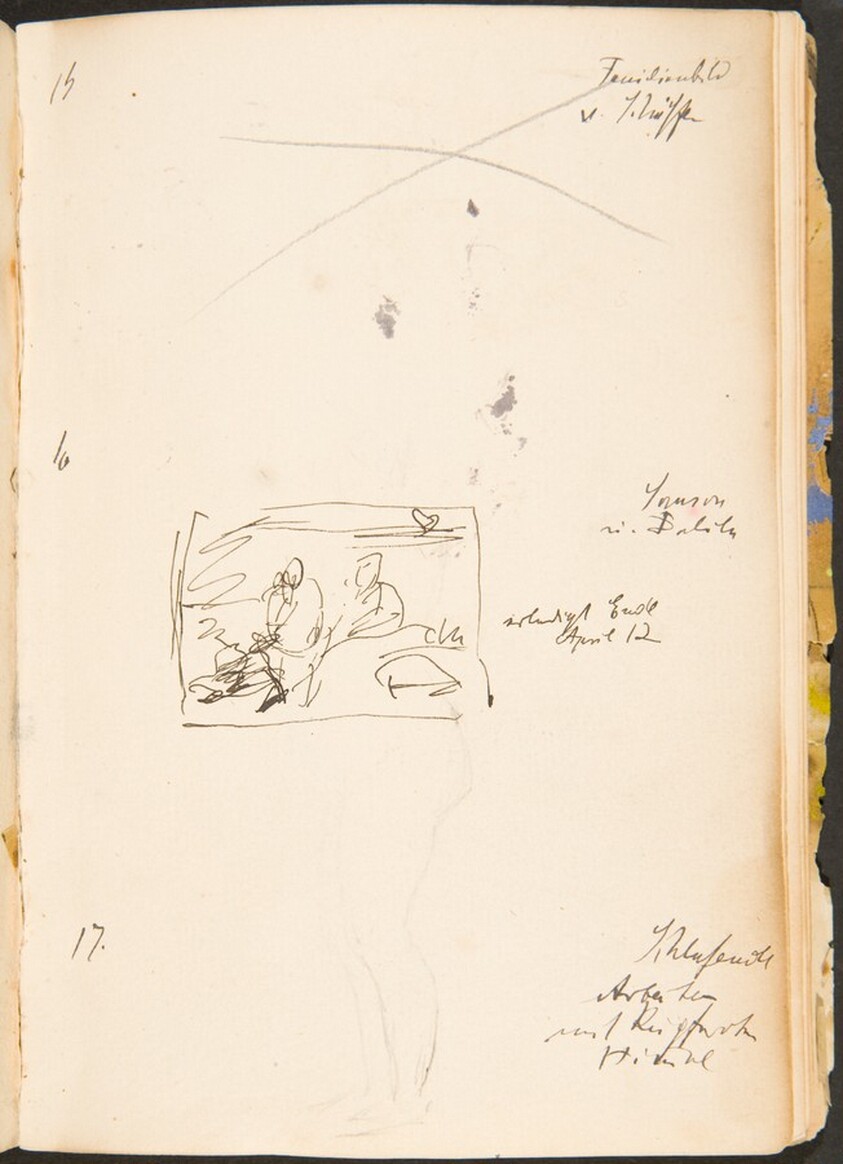 15
Familienbild
v.
16
Samson
u. Dalila
erledigt Ende
April 12
17.
Schlafende
Arbeiter
mit
Himmel